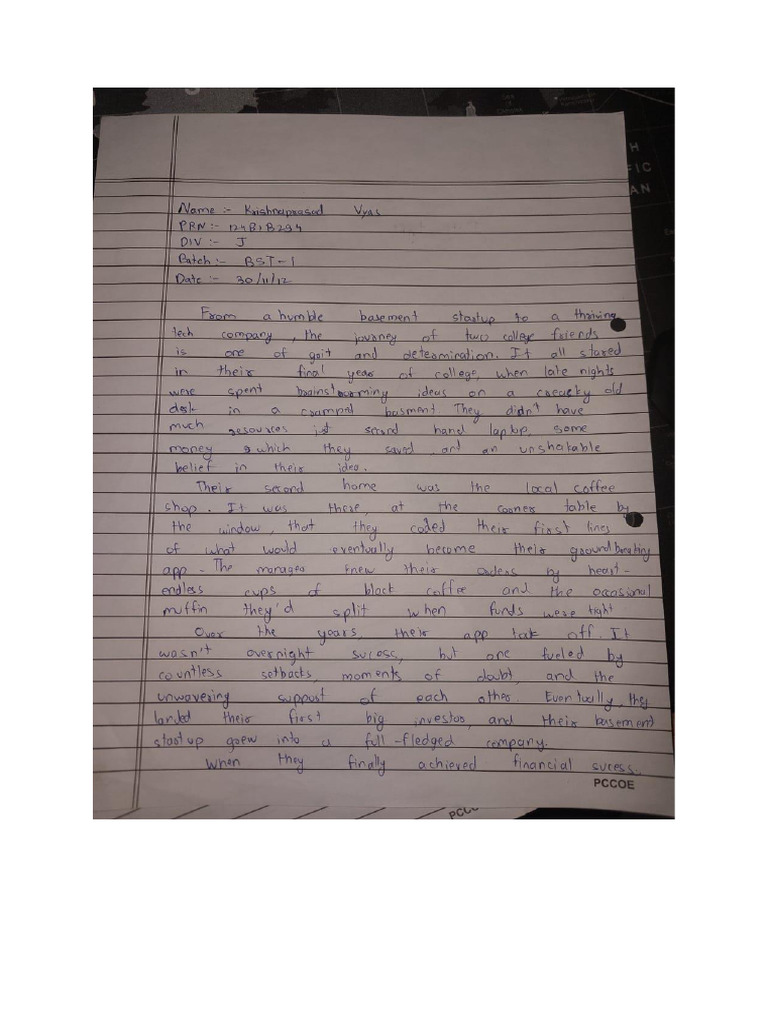 Name :- Krishnaprasad Vyas
PRN :- 124B1B294
DIV :- J
Batch :- BST-1
Date :- 30/11/12
From a humble basement startup to a thriving
tech company, the journey of two college friends
is one of grit and determination. It all stared
in their final year of college, when late nights
were spent brainstorming ideas on a creaky old
desk in a cramped basment They didn't have
much resources just second hand laptop, some
money which they saved and an unshakable
belief in their idea.
Their second home was the local coffee
shop. It was there, at the corner table by
the window, that they coded their first lines
of what would eventually become their groundbreaking
app. The manager knew their orders by heart-
endless cups of black coffee and the occasional
muffin they'd split when funds were tight
Over the years, their app took off. It
wasn't overnight sucess, but one fueled by
countless setbacks, moments of doubt, and the
unwavering support of each other. Eventually, they
landed their first big investor, and their basement
startup grew into a full-fledged company.
When they finally achieved financial sucess.
PCCOE